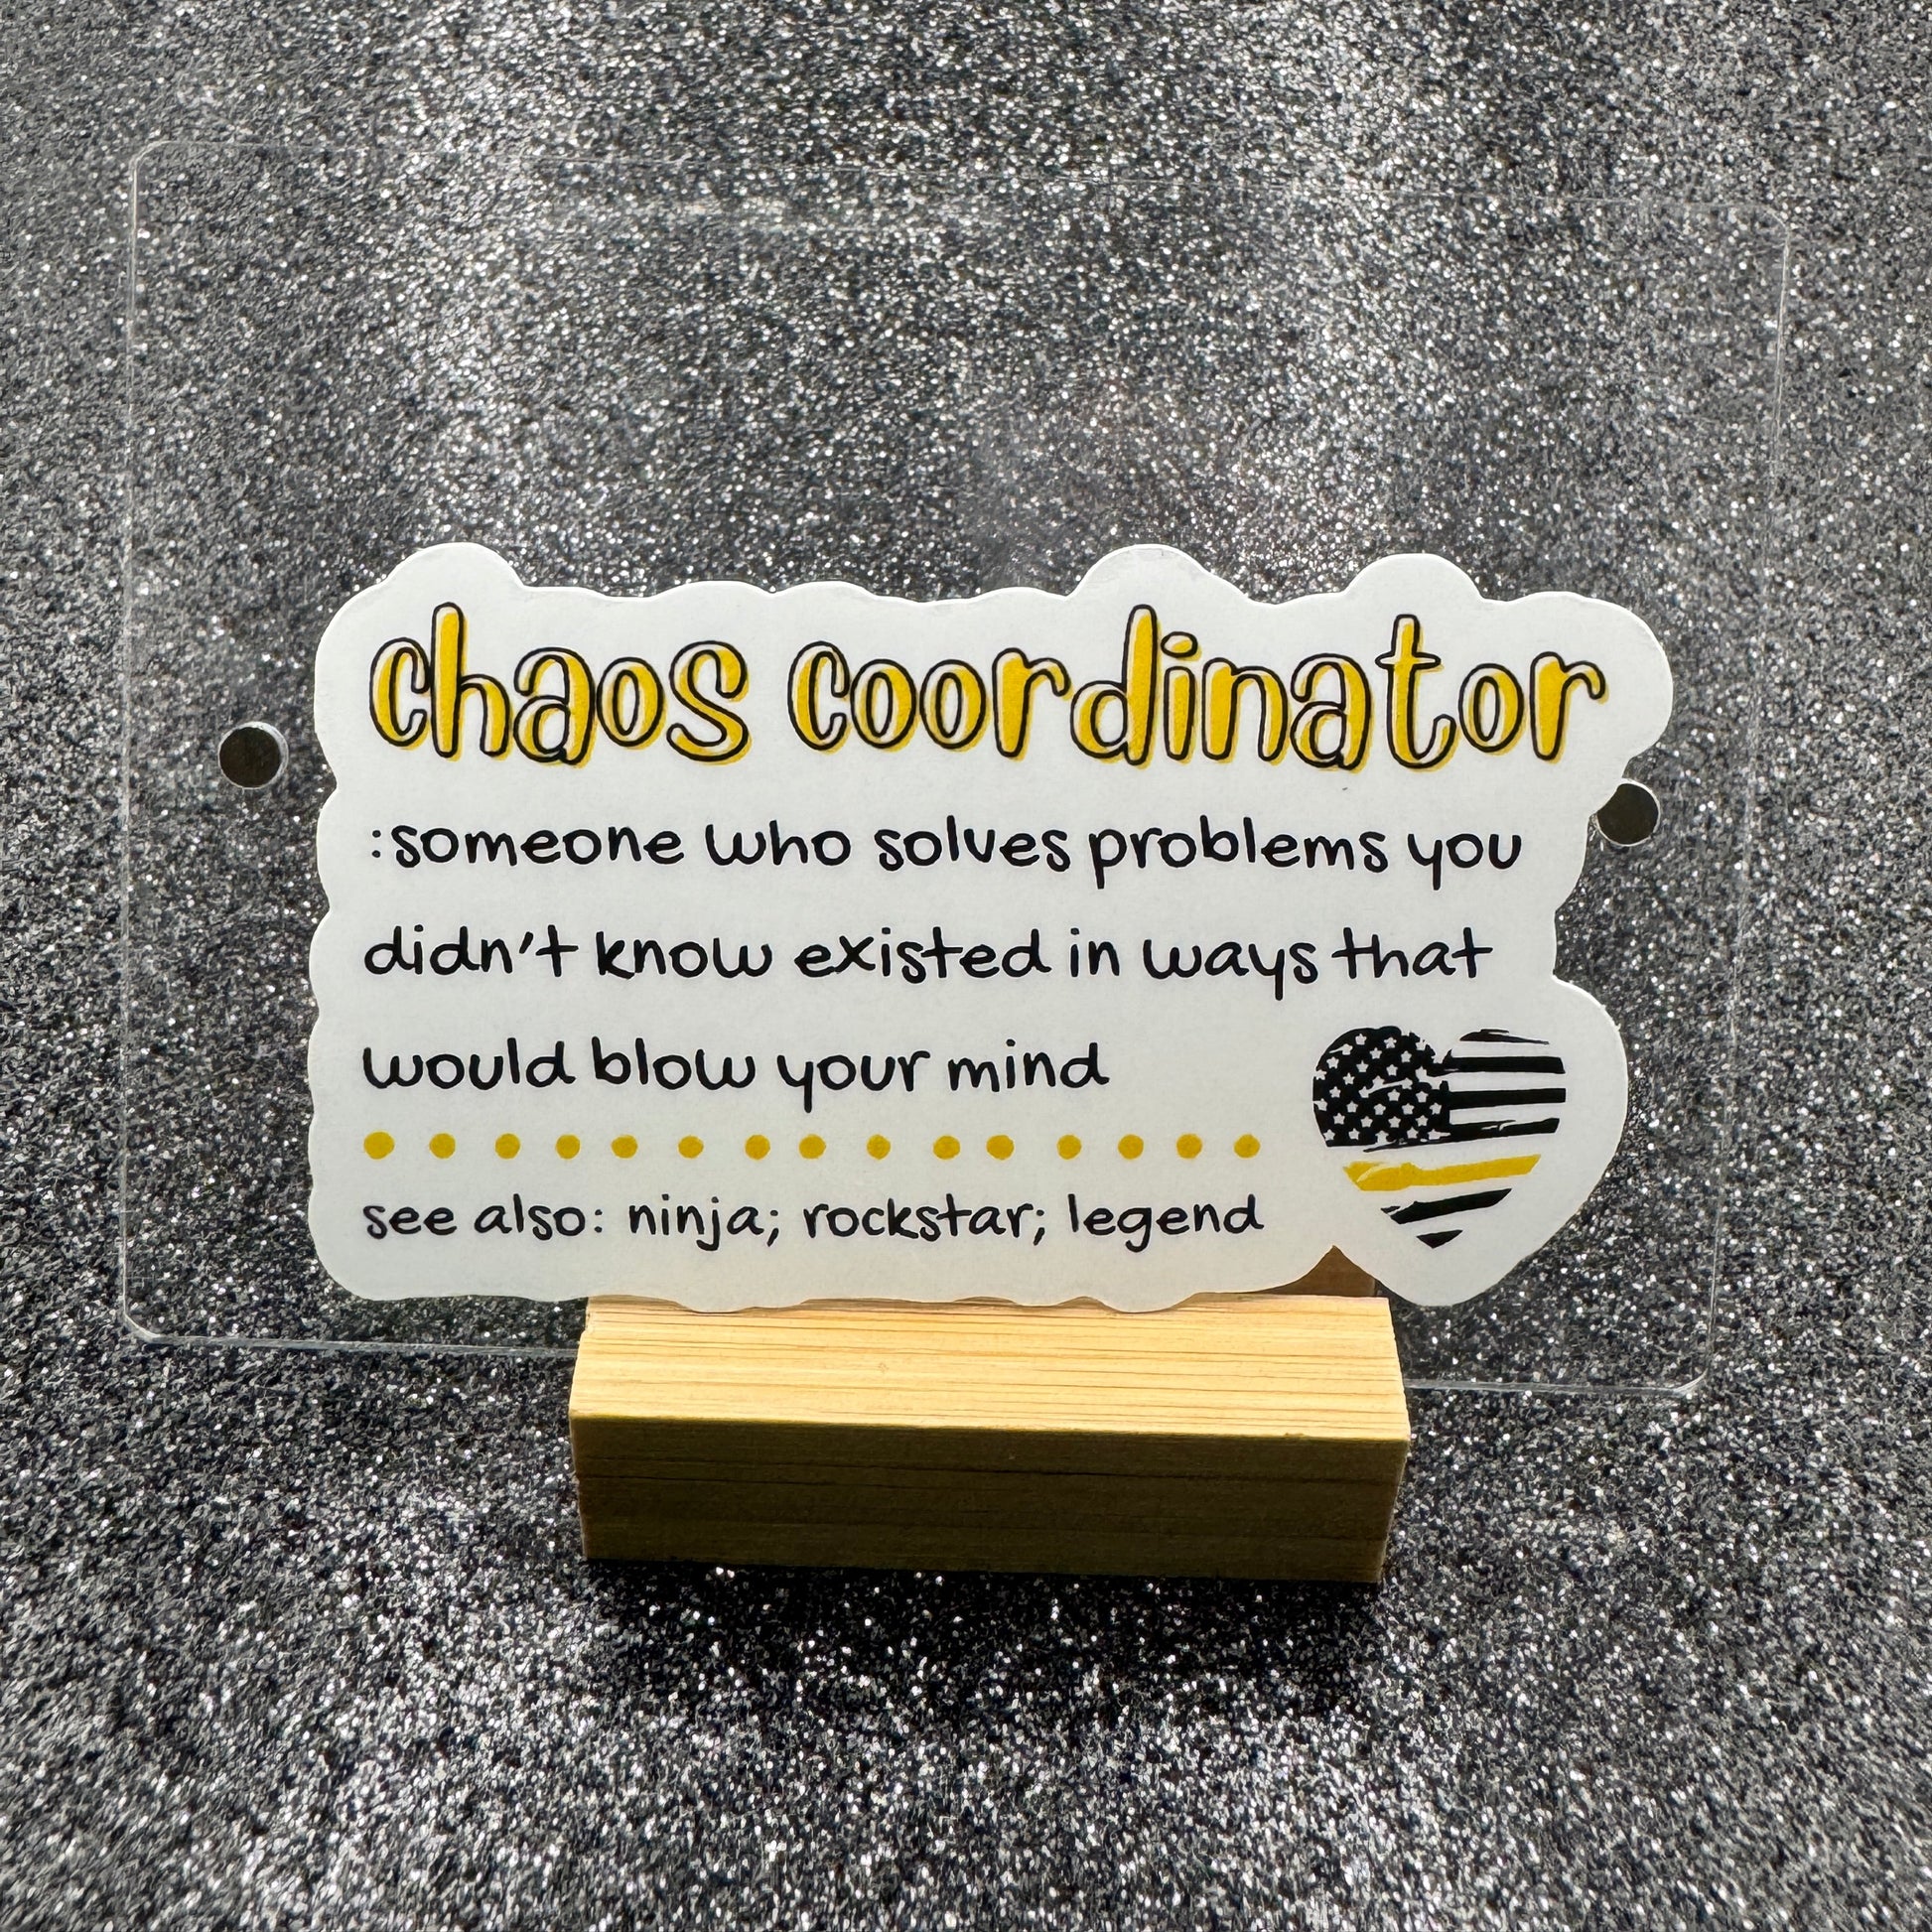 chaos coordinator
:someone who solves problems you
didn't know existed in ways that
would blow your mind
see also: ninja; rockstar; legend